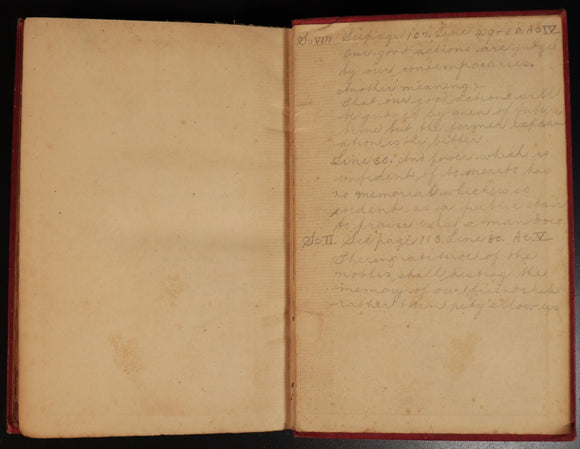 Sc VII See page 102 Line 49-50. Act IV
Our good actions are judged
by our contemporaries.
Another meaning:
That our good actions will
be judged by men of future
time but the former explan
ation is the better.
Line 50. And power which is
confident of its merits has
no memorial which is so
evident as a public chair
to praise what a man does
Sc II See page 113, Line 80. Act V
The ingratitude of the
nobles shall destroy the
memory of our friendship
rather than pity allow us